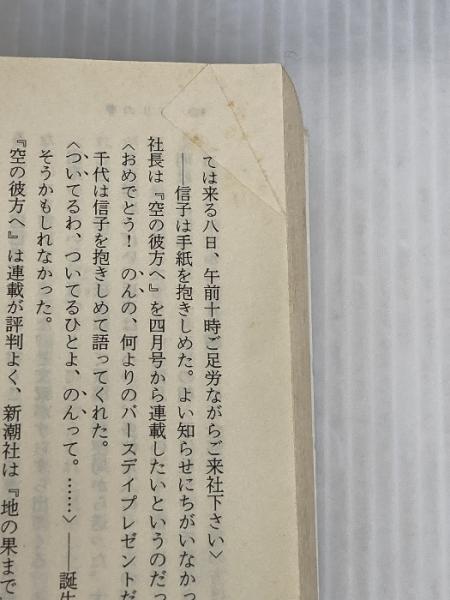 ては来る八日、午前十時ご足労ながらご来社下さい〉
――信子は手紙を抱きしめた。よい知らせにちがいなかっ
社長は『空の彼方へ』を四月号から連載したいというのだっ
〈おめでとう！ のんの、何よりのバースデイプレゼントだ
千代は信子を抱きしめて語ってくれた。
〈ついてるわ、ついてるひとよ、のんって。……〉――誕生
そうかもしれなかった。
『空の彼方へ』は連載が評判よく、新潮社は『地の果まで